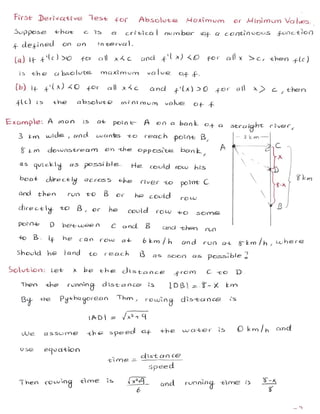 First Derivative Test for Absolute Maximum or Minimum Values.
Suppose that c is a critical number of a continuous function
f defined on an interval.
(a) If f'(x) >0 for all x<c and f'(x) <0 for all x >c, then f(c)
is the absolute maximum value of f.
(b) If f'(x) <0 for all x<c and f'(x)>0 for all x > c, then
f(c) is the absolute minimum value of f
Example: A man is at point A on a bank of a straight river,
3 km wide, and wants to reach point B,
8 km downstream on the opposite bank,
as quickly as possible. He could row his
boat directly across the river to point C
and then run to B or he could row
directly to B, or he could row to some
point D between C and B and then run
to B. If he can row at 6 km/h and run at 8 km/h, where
Should he land to reach B as soon as possible?
A
C
x
D
8-x
B
8 km
Solution: Let x be the distance from C to D
Then the running distance is |DB| = 8-x km
By the Pythagorean Thm, rowing distance is
|AD| = √x²+9
We assume the speed of the water is 0 km/h and
use equation
time = distance
speed
Then rowing time is √x²+9 / 6 and running time is 8-x / 8